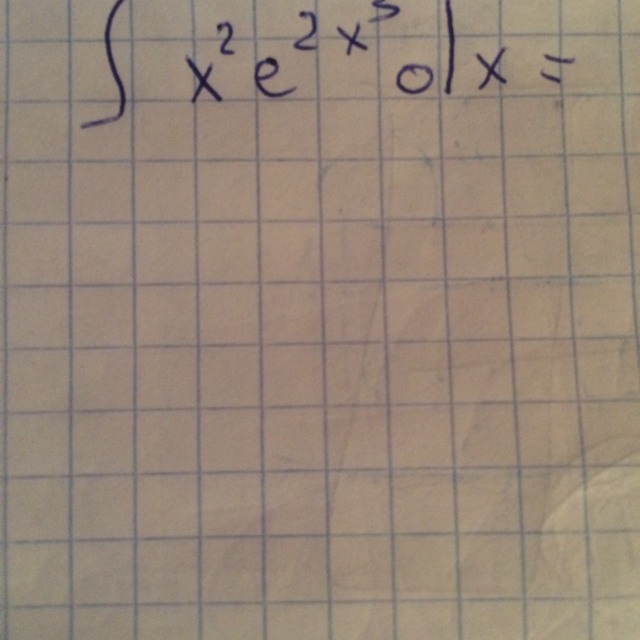 ∫ x² e^{2x³} dx =